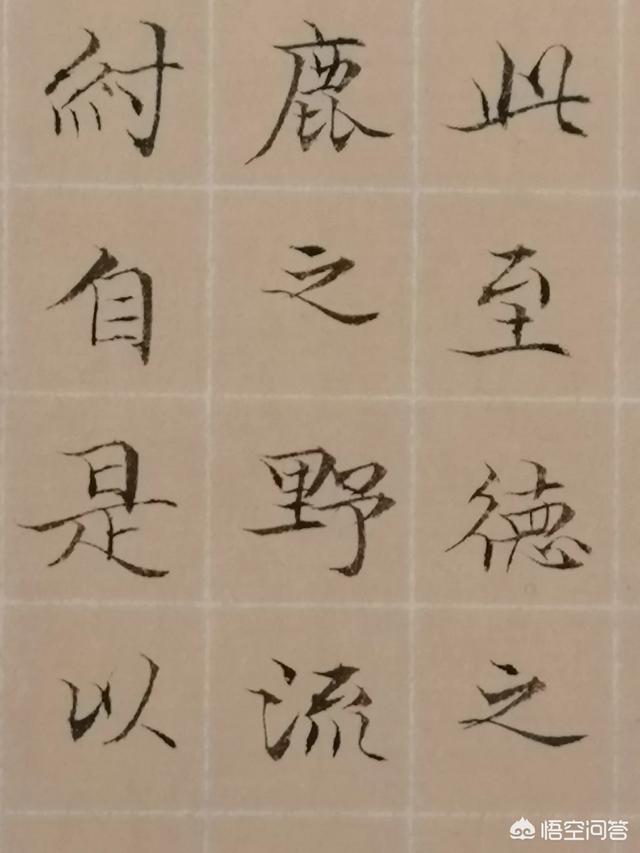 此至德之
鹿之野流
紂自是以
悟空问答